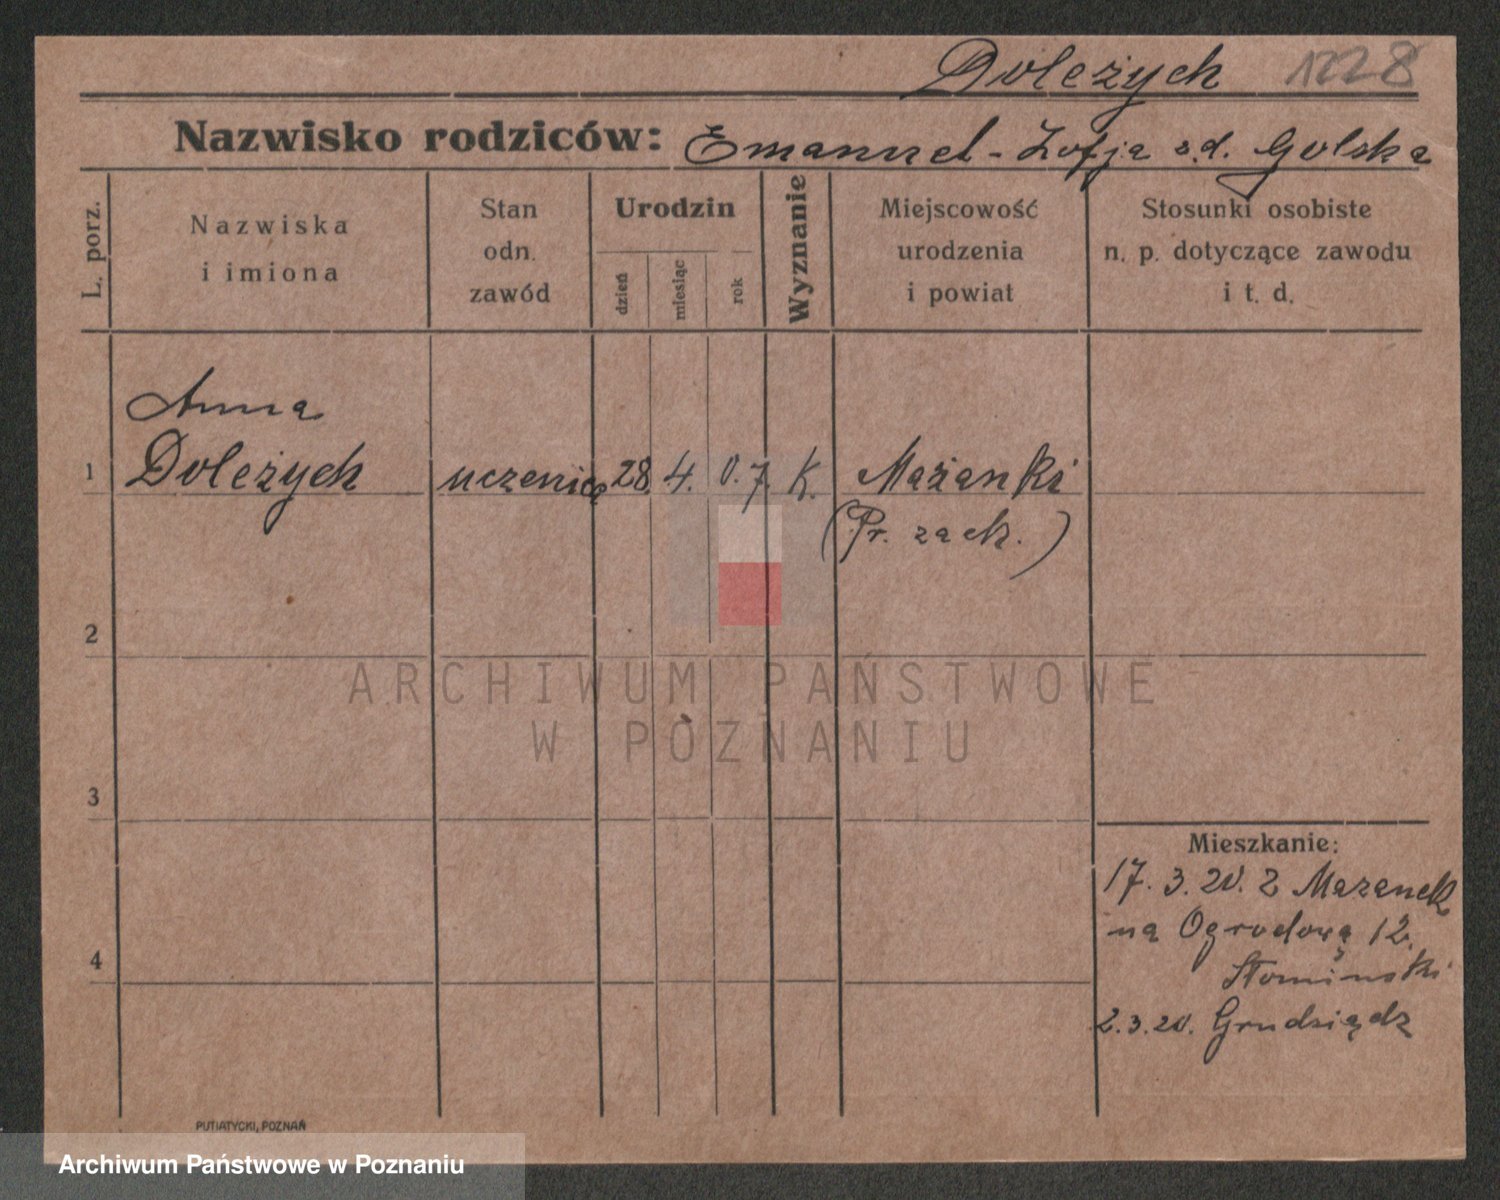 Doleżych 1228
Nazwisko rodziców: Emanuel - Zofja z.d. Golska
L. porz.
Nazwiska
i imiona
Stan
odn.
zawód
Urodzin
dzień
miesiąc
rok
Wyznanie
Miejscowość
urodzenia
i powiat
Stosunki osobiste
n. p. dotyczące zawodu
i t. d.
Anna
1 Doleżych uczenica 28. 4. 07. K. Mażanki
(Pr. zach.)
2
ARCHIWUM PAŃSTWOWE
W POZNANIU
3
Mieszkanie:
17. 3. 20. z Mazanek
na Ogrodową 12.
Słomiński
4
2.3.20. Grudziądz
PUTIATYCKI, POZNAŃ
Archiwum Państwowe w Poznaniu